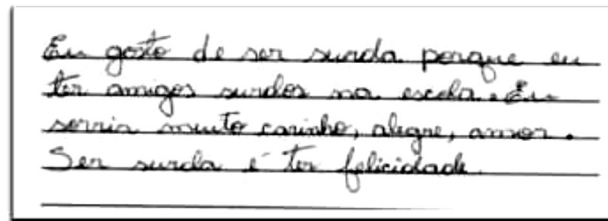 Eu gosto de ser surda porque eu
ter amigos surdos na escola. Eu
sorrir muito carinho, alegre, amor.
Ser surda é ter felicidade.